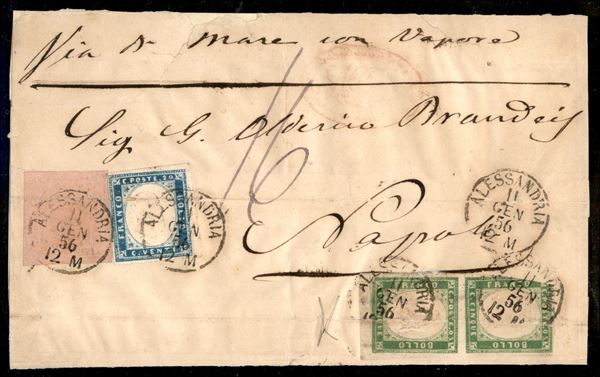 Via di Mare con Vapore
Sig G. Olderico Brandeis
Napoli
16
ALESSANDRIA
11
GEN
56
12 M
C. POSTE. 20
FRANCO
BOLLO
C. VENTI
ALESSANDRIA
GEN
56
12 M
ALESSANDRIA
11
GEN
56
12 M
FRANCO
C. POSTE. 05
C. CINQUE
BOLLO
11
GEN
56
FRANCO
C. POSTE. 05
C. CINQUE
BOLLO
11
GEN
56
12